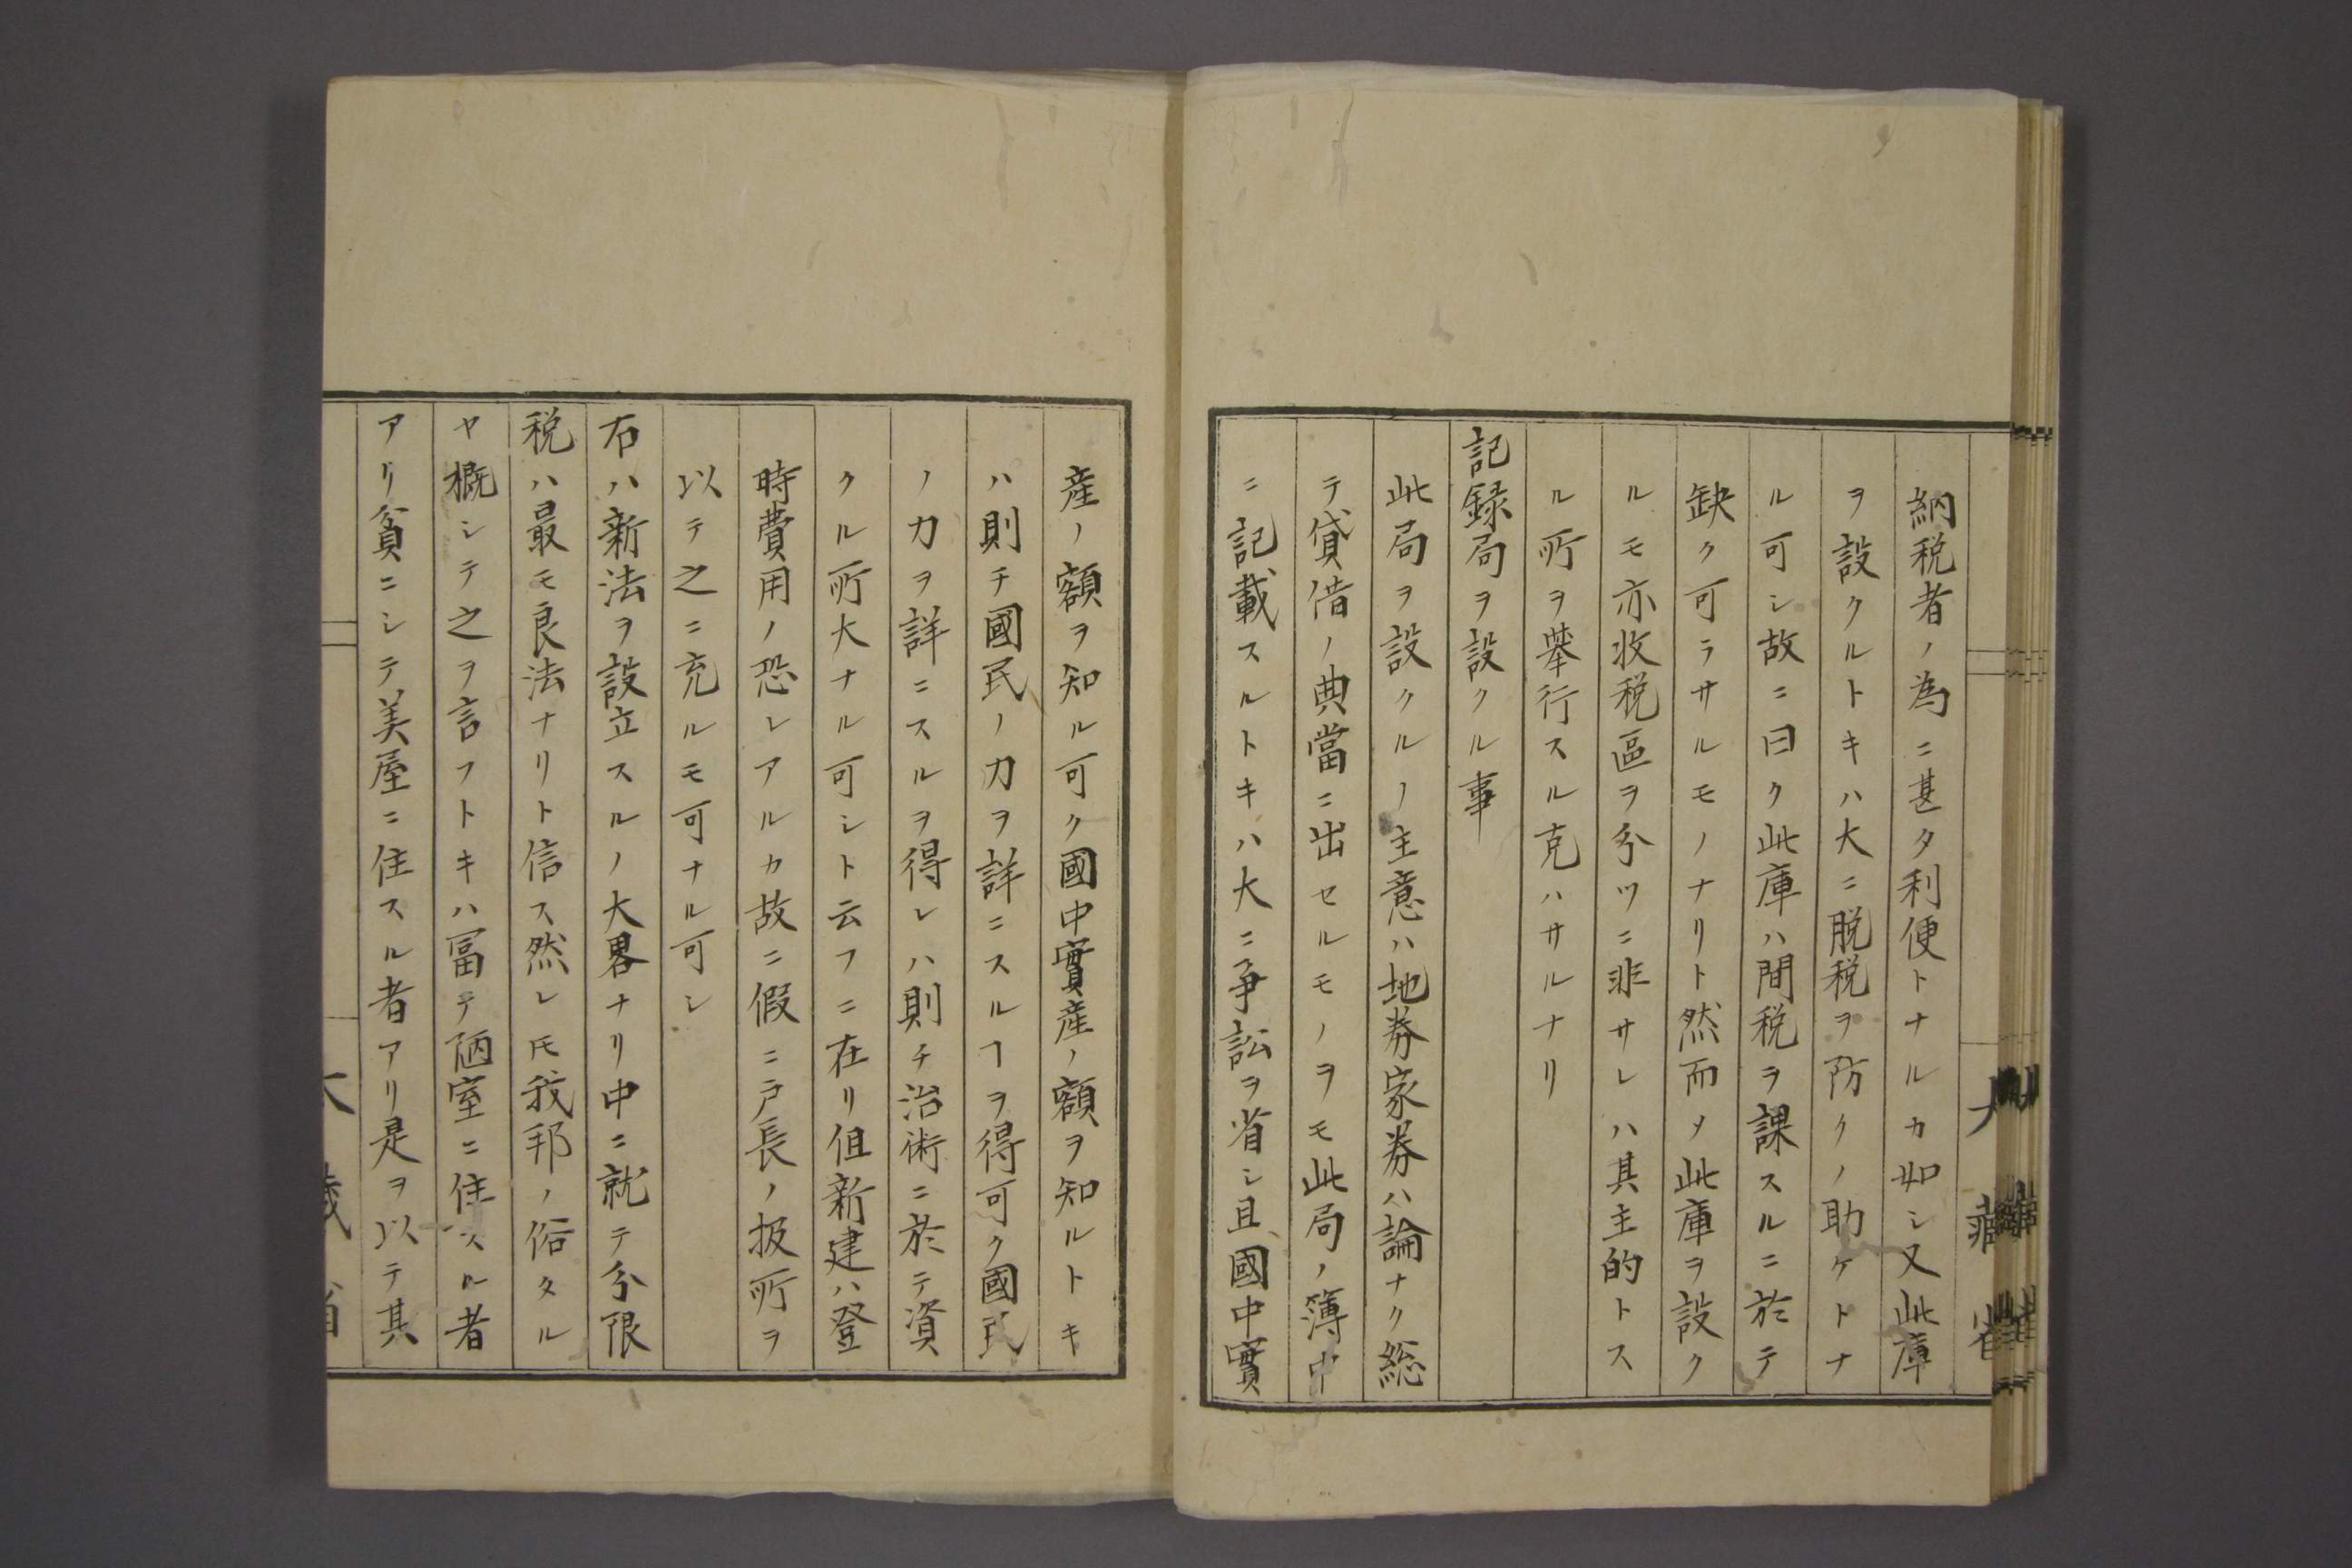 納税者ノ為ニ甚タ利便トナルカ如シ又此庫
ヲ設クルトキハ大ニ脱税ヲ防クノ助ケトナ
ル可シ故ニ曰ク此庫ハ間税ヲ課スルニ於テ
缺ク可ラサルモノナリト然而メ此庫ヲ設ク
ルモ亦收税區ヲ分ツニ非サレハ其主的トス
ル所ヲ挙行スル克ハサルナリ
記録局ヲ設クル事
此局ヲ設クルノ主意ハ地券家券ハ論ナク総
テ貸借ノ典當ニ出セルモノヲモ此局ノ簿中
ニ記載スルトキハ大ニ争訟ヲ省シ且國中實
産ノ額ヲ知ル可ク國中實産ノ額ヲ知ルトキ
ハ則チ國民ノ力ヲ詳ニスルヿヲ得可ク國民
ノ力ヲ詳ニスルヲ得レハ則チ治術ニ於テ資
クル所大ナル可シト云フニ在リ但新建ハ登
時費用ノ恐レアルカ故ニ假ニ戸長ノ扱所ヲ
以テ之ニ充ルモ可ナル可シ
右ハ新法ヲ設立スルノ大畧ナリ中ニ就テ分限
税ハ最モ良法ナリト信ス然レ𪜈我邦ノ俗タル
ヤ概シテ之ヲ言フトキハ冨テ陋室ニ住スル者
アリ貧ニシテ美屋ニ住スル者アリ是ヲ以テ其
大藏省